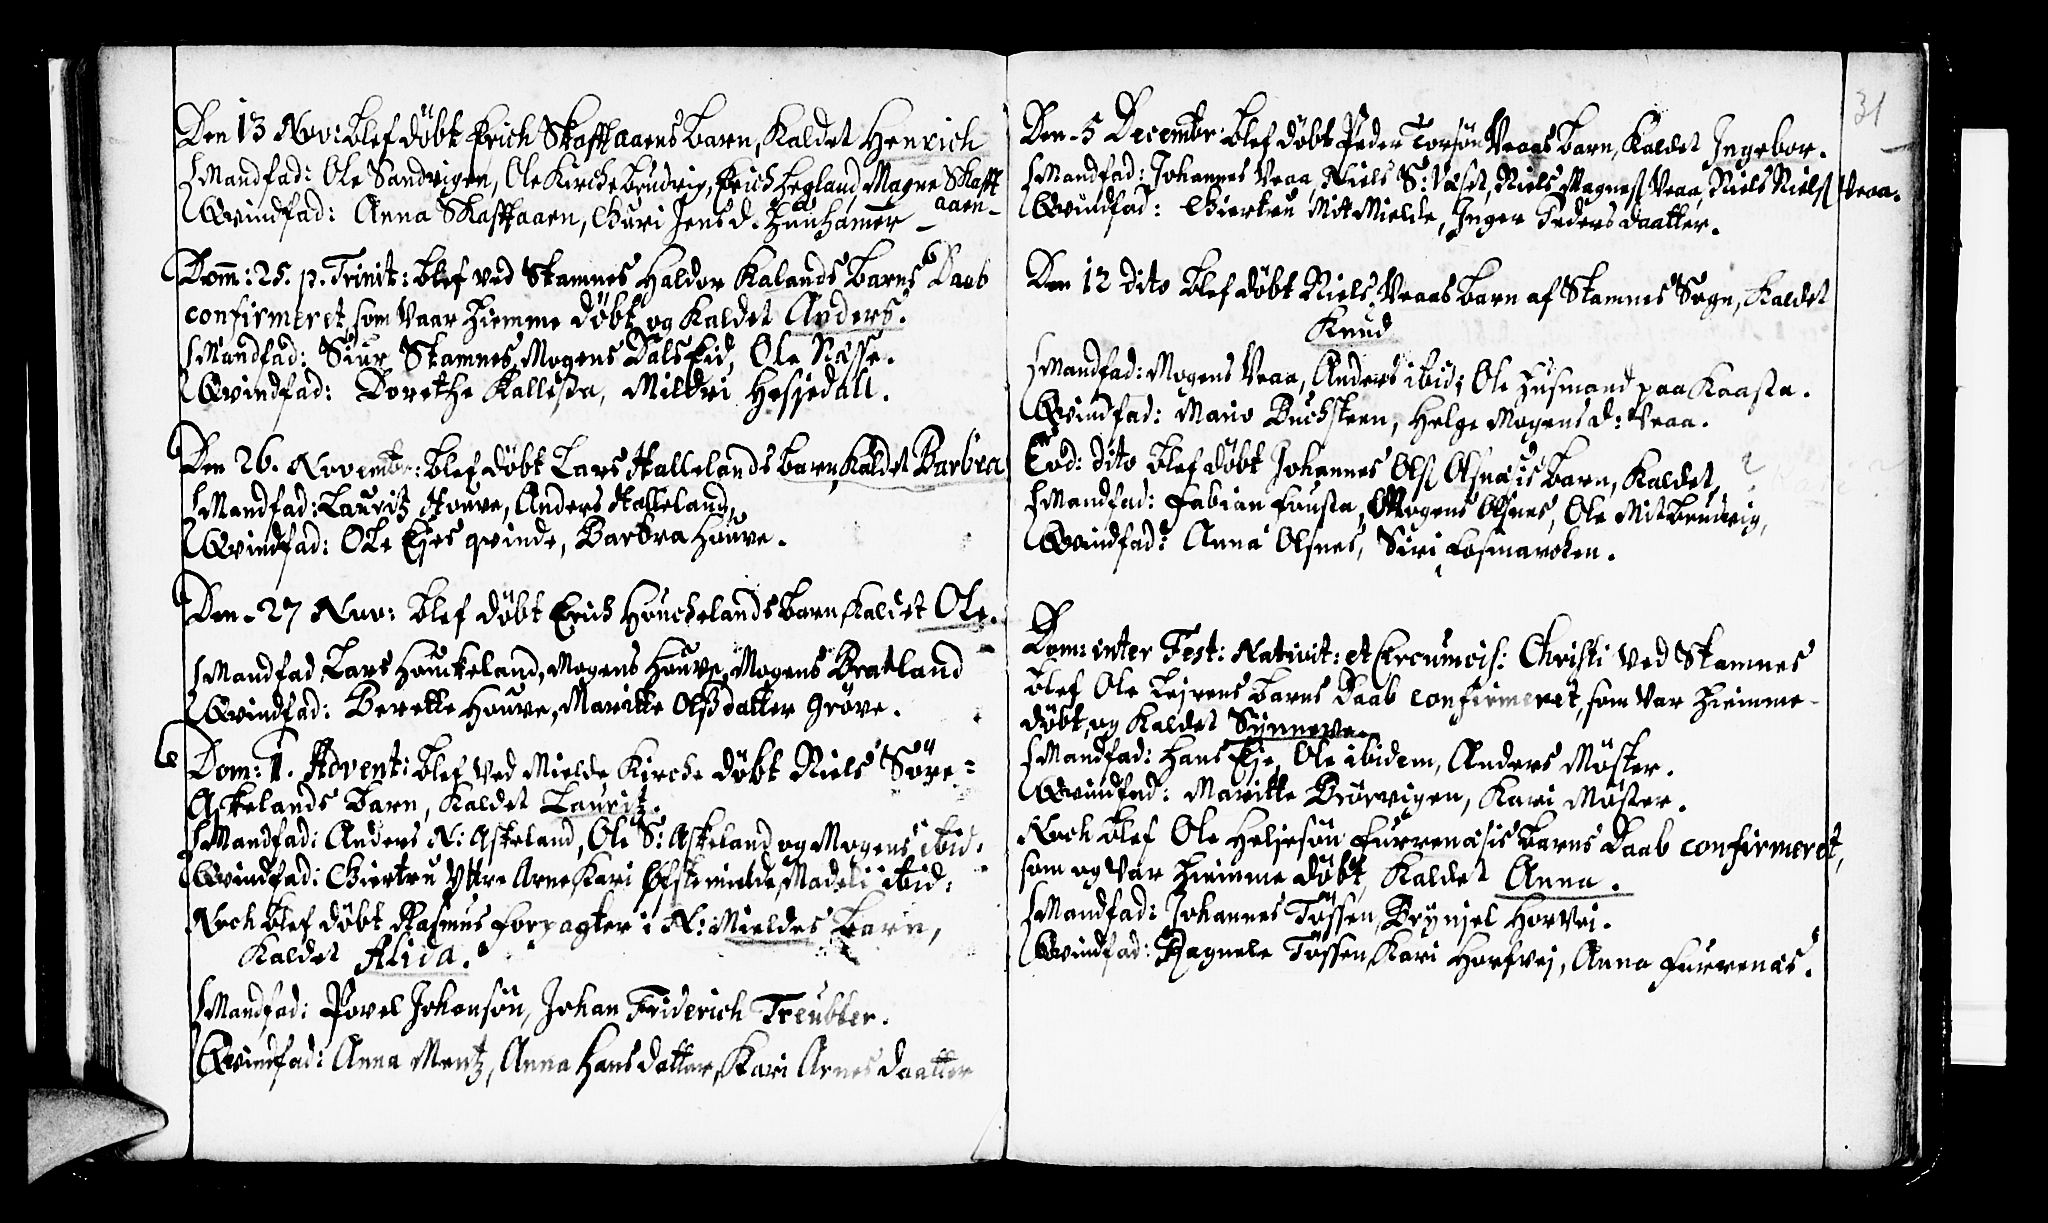 Den 13 Nov: blef döbt Erich Skafftaaens barn, Kaldet Henrich
Mandfad: Ole Sandvigen, Ole Kirchebrudvig, Erich Legland, Magne Skafft
aaen
Qvindfad: Anna Skafftaaen, Guri Jensd. Zunhamer
Dom: 25. p. Trinit: blef ved Stamnes Haldor Kalands barns Daab
confirmeret, som vaar hiemme döbt og Kaldet Anders.
Mandfad: Siur Stamnes, Mogens Dalseid, Ole Næsse.
Qvindfad: Dorethe Kallesta, Mildri Hesjedall.
Den 26. Novembr: blef döbt Lars Hallelands barn, Kaldet Barbra
Mandfad: Lauritz Houve, Anders Halleland,
Qvindfad: Ole Ejes qvinde, Barbra Houve.
Den 27 Nov: blef döbt Erich Houchelands barn, Kaldet Ole.
Mandfad: Lars Houckeland, Mogens Houve, Mogens Bratland
Qvindfad: Berette Houve, Maritte Olsdatter Gröve.
Dom: 1. Advent: blef ved Mielde Kirche döbt Niels Söre-
Askelands barn, Kaldet Lauritz.
Mandfad: Anders N: Askeland, Ole S: Askeland og Mogens ibid:
Qvindfad: Giertru Yttre Arne, Kari Öfstemielde, Madeli ibid:
Noch blef döbt Rasmus Forpagter i N: Mieldes barn,
Kaldet Alida.
Mandfad: Povel Johansön, Johan Friderich Treubler.
Qvindfad: Anna Mentz, Anna Hansdatter, Kari Arnes daatter
31
Den 5 Decembr: blef döbt Peder Torsön Veaas barn, Kaldet Ingebor.
Mandfad: Johannes Veaa, Niels S: Væset, Niels Magnes: Veaa, Niels Niels: Veaa.
Qvindfad: Giertru Mitmielde, Inger Peders daatter.
Den 12 dito blef döbt Niels Veaas barn af Stamnes Sogn, Kaldet
Knud
Mandfad: Mogens Veaa, Anders ibid; Ole Husmand paa Kaasta.
Qvindfad: Mario Buchsteen, Helge Mogensd: Veaa.
Eod: dito blef döbt Johannes Ols: Olsnæsis barn, Kaldet ?
Mandfad: Fabian Fausta, Mogens Olsnes, Ole Mitbrudvig,
Qvindfad: Anna Olsnes, Siri Fosmarken.
Dom: inter Fest: Nativit: et Circumcis: Christi ved Stamnes
blef Ole Lejrens barns Daab confirmeret, som var hiemme-
döbt, og Kaldet Synneve.
Mandfad: Hans Eje, Ole ibidem, Anders Möster.
Qvindfad: Maritte Brörvigen, Kari Möster.
Noch blef Ole Heljesön Furrenæsis barns Daab confirmeret,
som og var hiemme döbt, Kaldet Anna.
Mandfad: Johannes Tössen, Brynjel Horvei.
Qvindfad: Ragnele Tössen, Kari Horfvej, Anna Furrenæs.